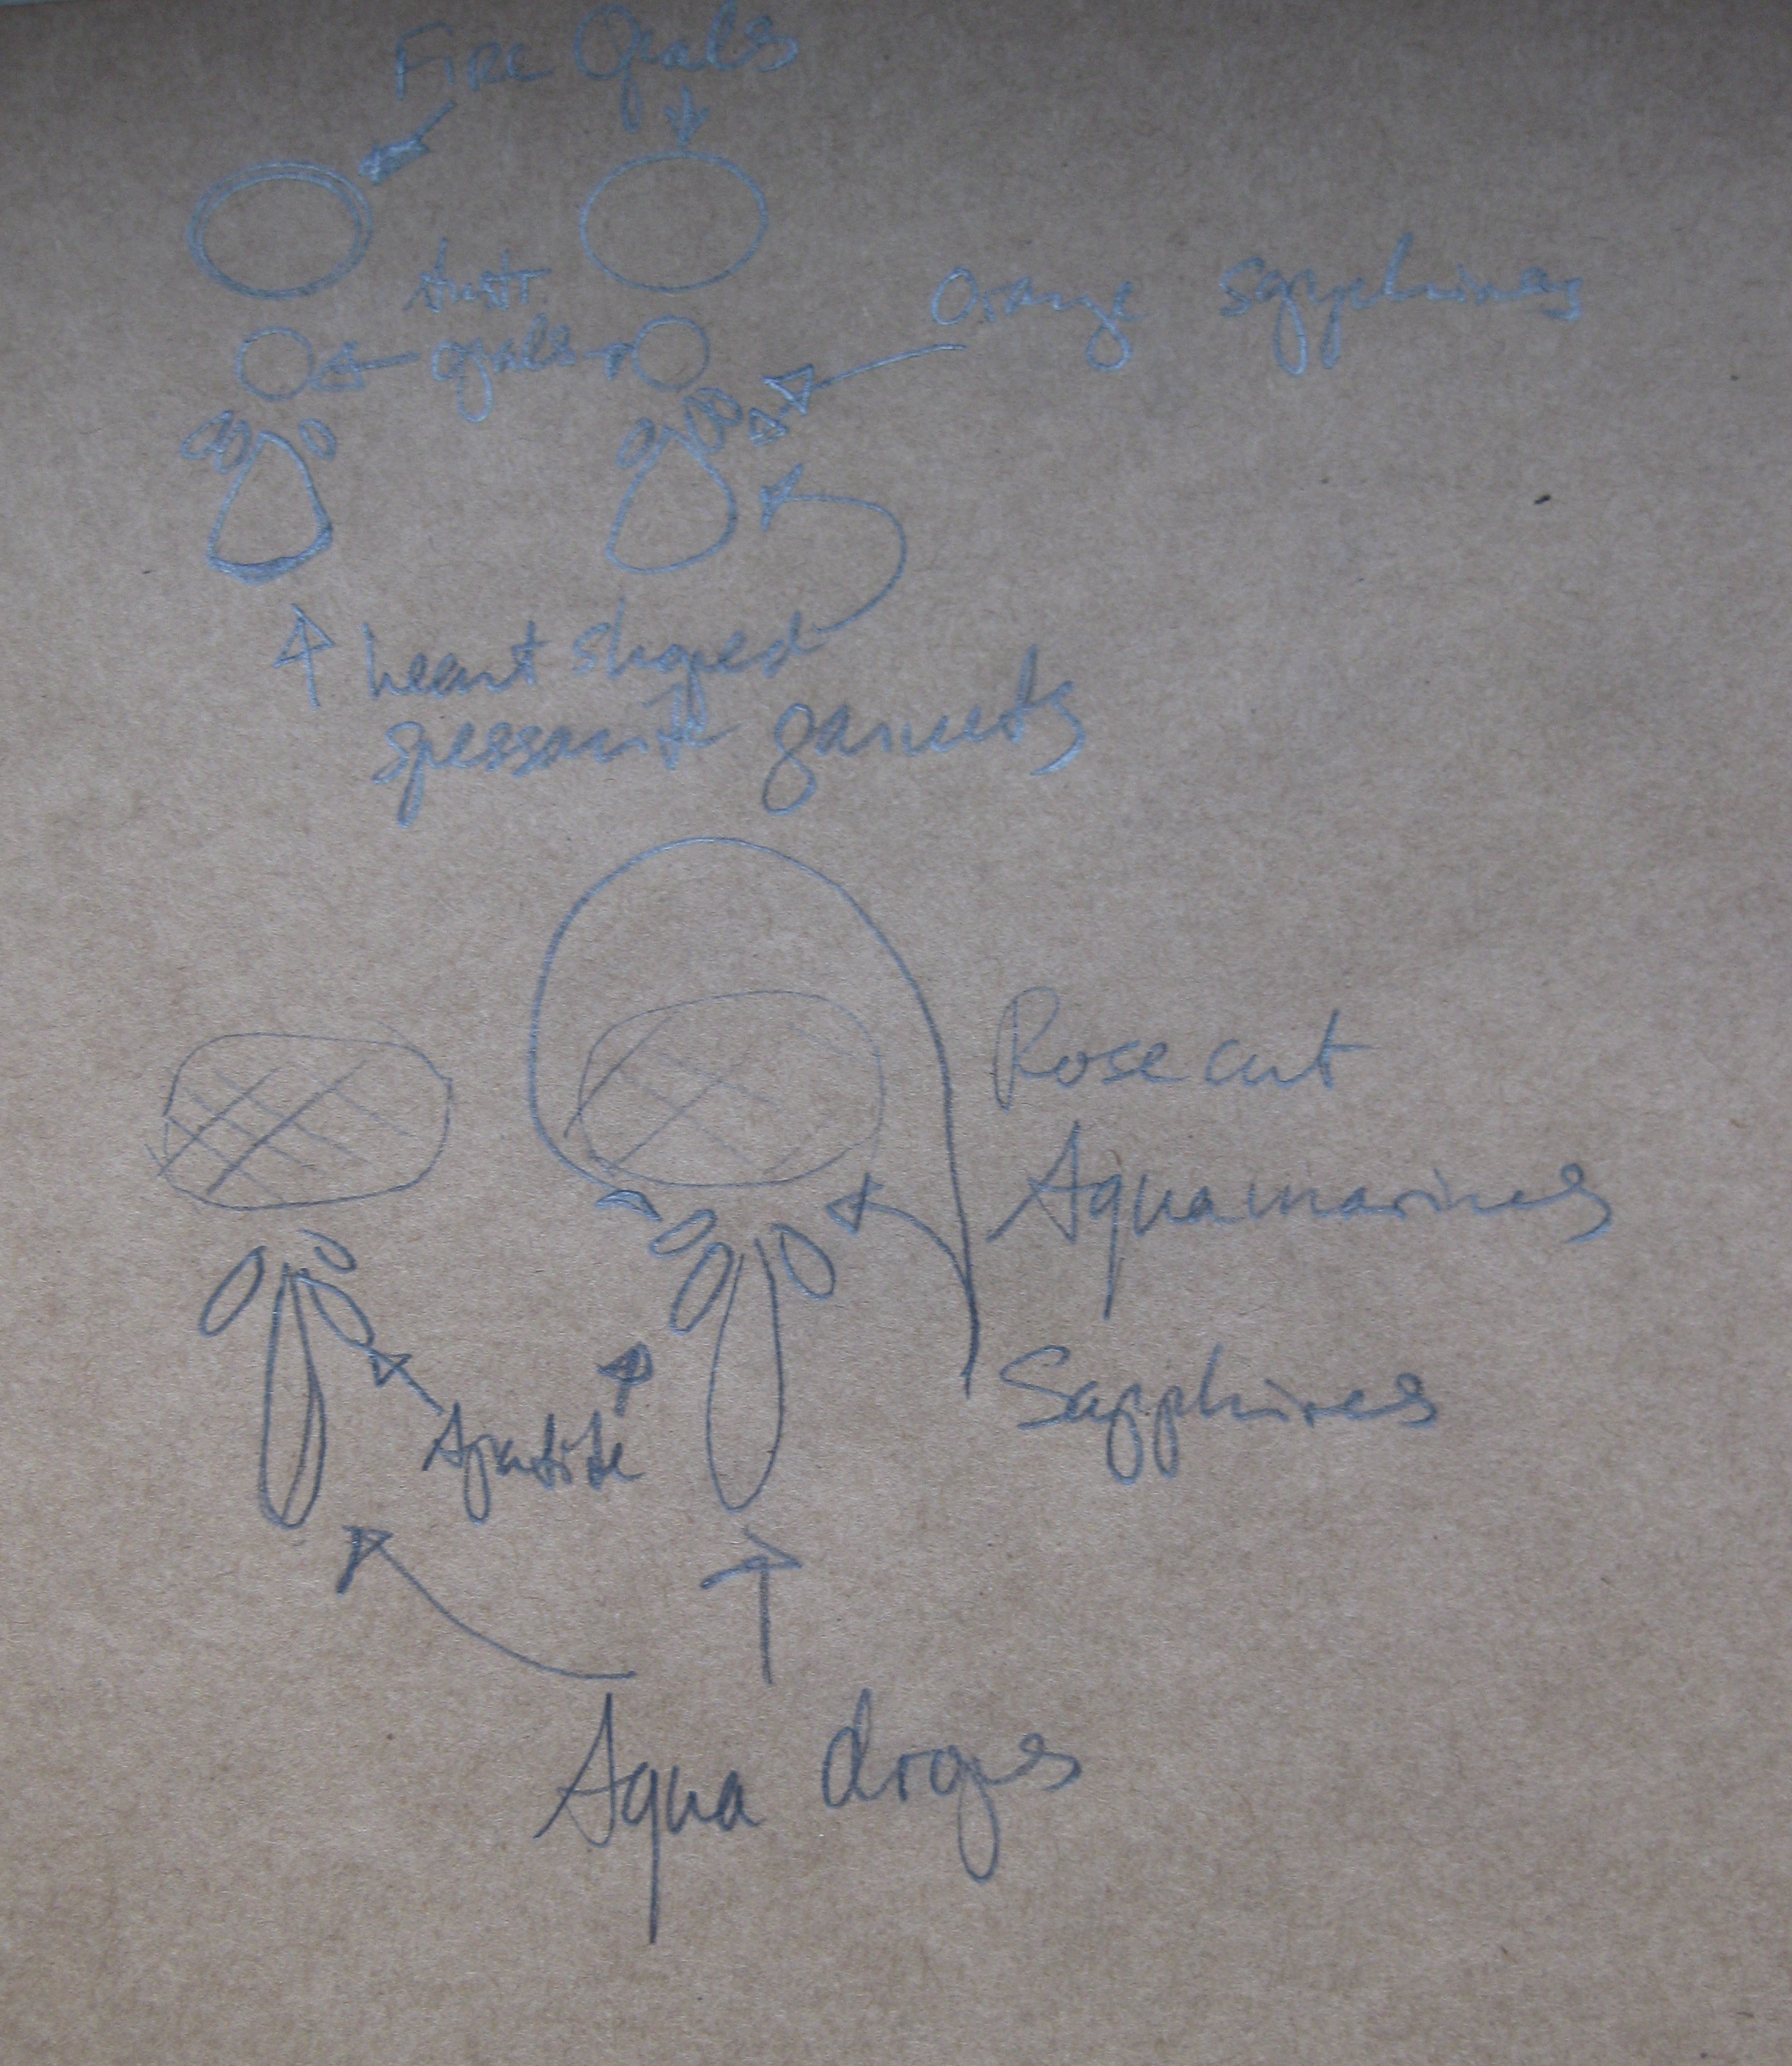 Fire Opals
Austr.
opals
Orange sapphires
heart shaped
spessarite garnets
Rose cut
Aquamarines
Sapphires
Apatite
Aqua drops